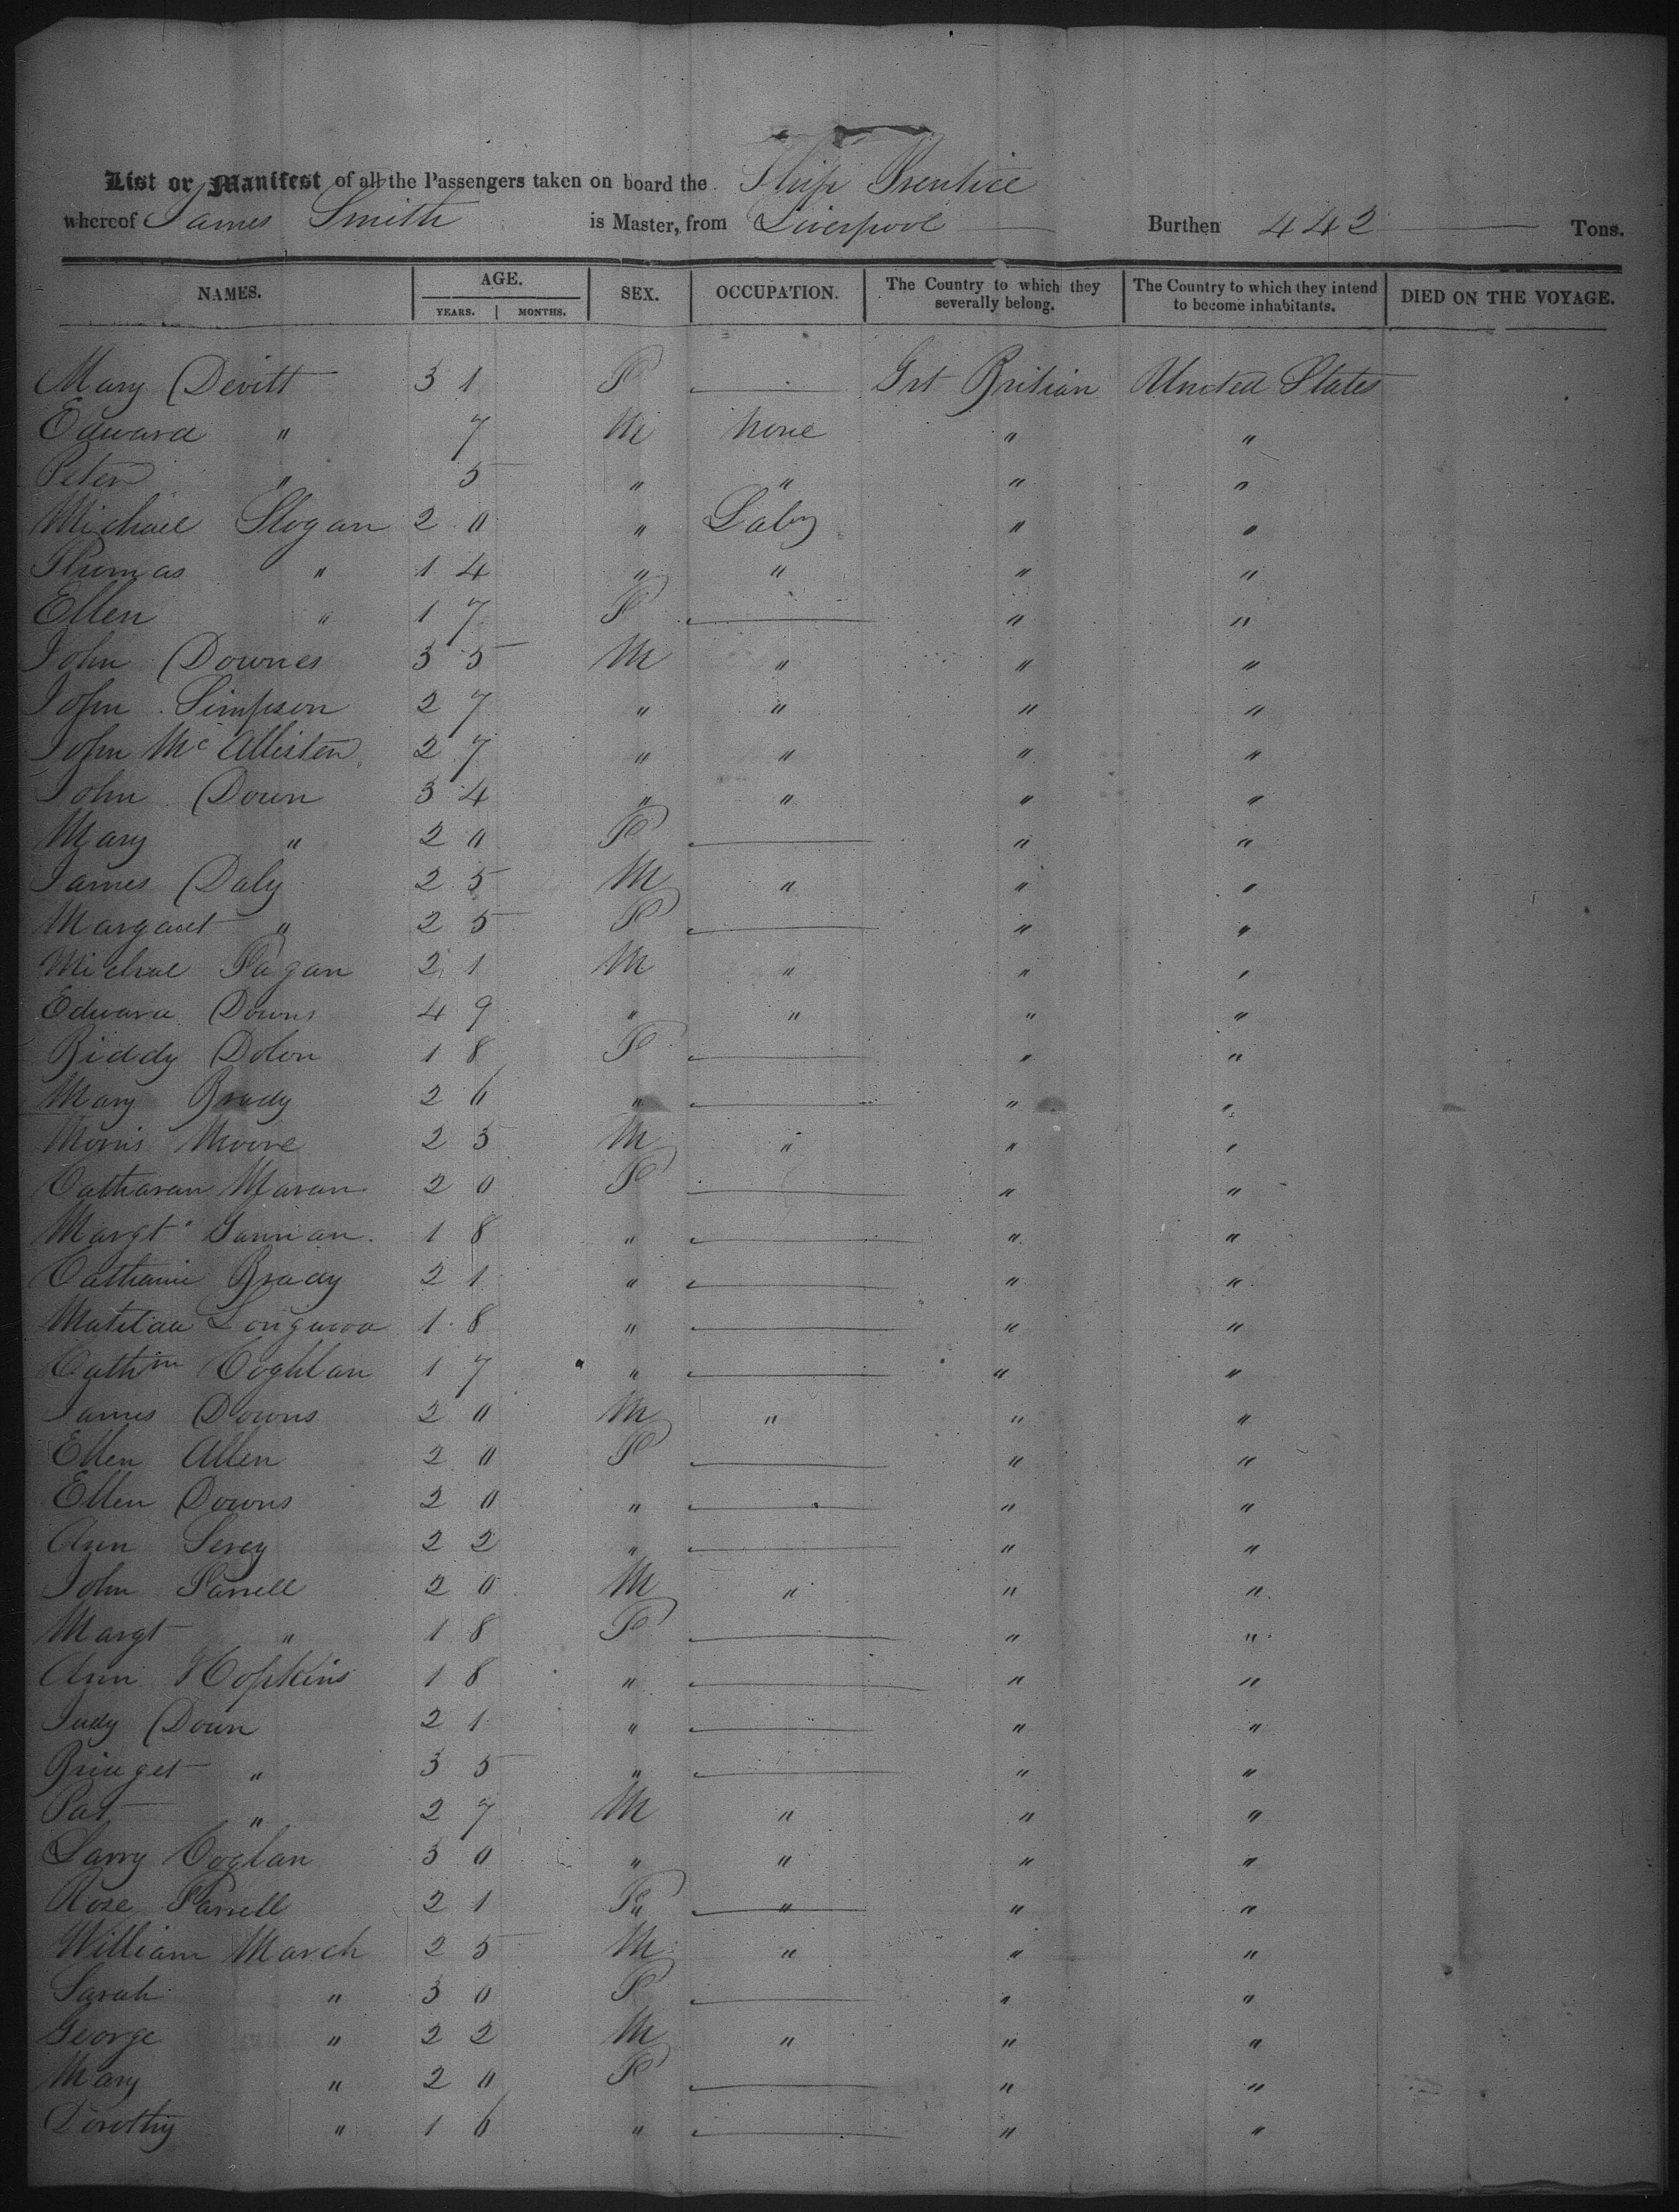 List or Manifest of all the Passengers taken on board the Ship Prentice
whereof James Smith is Master, from Liverpool Burthen 442 Tons.
NAMES. AGE. SEX. OCCUPATION. The Country to which they severally belong. The Country to which they intend to become inhabitants. DIED ON THE VOYAGE.
YEARS. MONTHS.
Mary Devitt 31 F Grt Britian United States
Edward " 7 M None " "
Peter " 5 " " " "
Michael Slogan 20 " Laby " "
Thomas " 14 " " " "
Ellen " 17 F " "
John Downes 35 M " " "
John Simpson 27 " " " "
John McAllister 27 " " " "
John Down 34 " " " "
Mary " 20 F " "
James Daly 25 M " " "
Margaret " 25 F " "
Michael Fagan 21 M " " "
Edward Downs 49 " " " "
Biddy Dolon 18 F " "
Mary Brady 26 " " "
Morris Moore 25 M " " "
Catharan Maran 20 F " "
Margt 18 " " "
Catharine Brady 21 " " "
Matilda Longwood 18 " " "
Cathin Coghlan 17 " " "
James Downs 20 M " " "
Ellen Allen 20 F " "
Ellen Downs 20 " " "
Ann 22 " " "
John Farrell 20 M " " "
Margt " 18 F " "
Ann Hopkins 18 " " "
Judy Down 21 " " "
Bridget " 35 " " "
Pat " 27 M " " "
Larry Coglan 30 " " " "
Rose Farrell 21 F " " " "
William March 25 M " " "
Sarah " 30 F " "
George " 22 M " " "
Mary " 20 F " "
Dorothy " 16 " " "